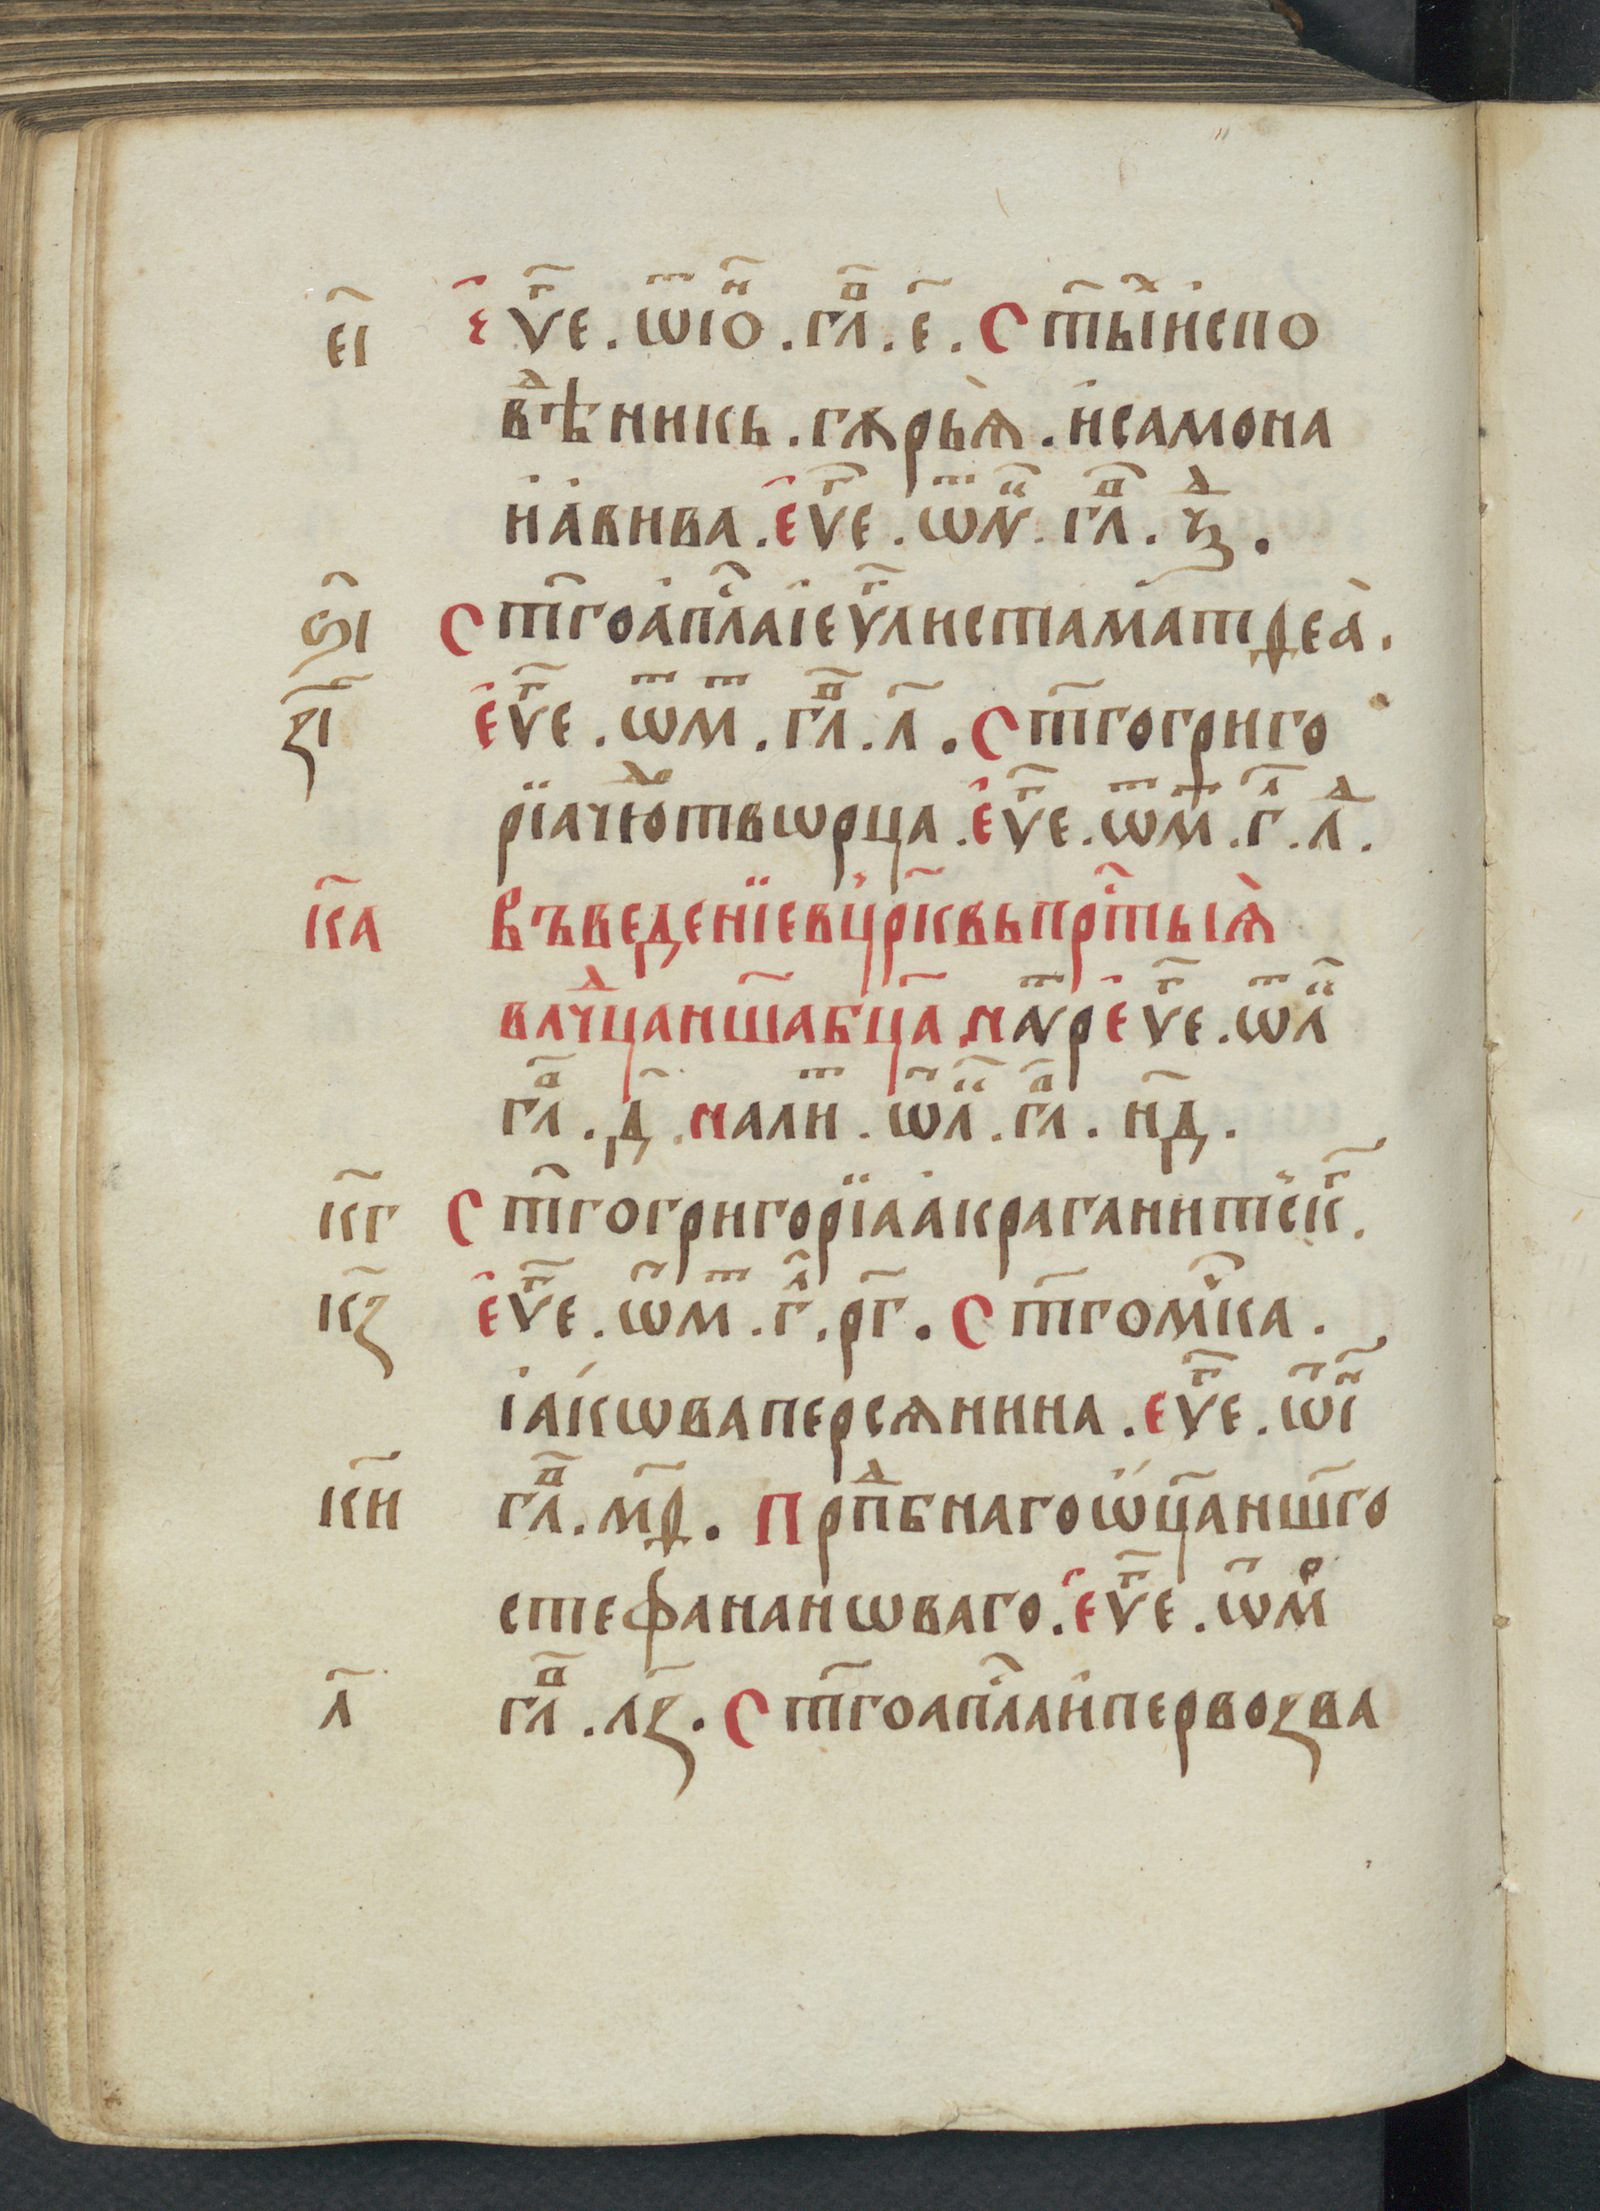 е҃і є҆ѵⷢ҇е . ѿ іоⷩ҇ . глⷡ҇ . є҃ . С т҃ыⷯ испо
вѣⷣникь . гѫрьѧ̀ . и самона
и авива . є҆ѵⷢ҇е . ѿ лⷦ҇ . глⷡ҇ . ѯⷣ .
ѕ҃і Ст҃го апⷭ҇ла і еѵⷢ҇листа матѳеа .
з҃і є҆ѵⷢ҇е . ѿ мⷮ . глⷡ҇ . л҃ . Ст҃го григо
рїа чюⷣотвѡрца . є҆ѵⷢ҇е . ѿ мⷮ . гⷧ҇ . лⷣ .
к҃а Въведенїе в цр҃квь прⷭ҇тыѧ
влчⷣца нш҃а бц҃а на ѵⷮр є҆ѵⷢ҇е . ѿ лⷦ҇
глⷡ҇ . д҃ . на лиⷮ . ѿ лⷦ҇ . глⷡ҇ . н҃д .
к҃г Ст҃го григорїа акраганитьскⷢ҇ .
к҃з є҆ѵⷢ҇е . ѿ мⷮ . гⷧ҇ . р҃г . Ст҃го мⷱ҇ка .
іакѡва персѧнина . єѵⷢ҇е . ѿ іⷩ҇
к҃и глⷡ҇ . м҃ѳ . Прпⷣбнаго ѡц҃а нш҃го
стефана новаго . є҆ѵⷢ҇е . ѿ мⷬ
л҃ глⷡ҇ . л҃з . Ст҃го апⷭ҇ла ин первозва